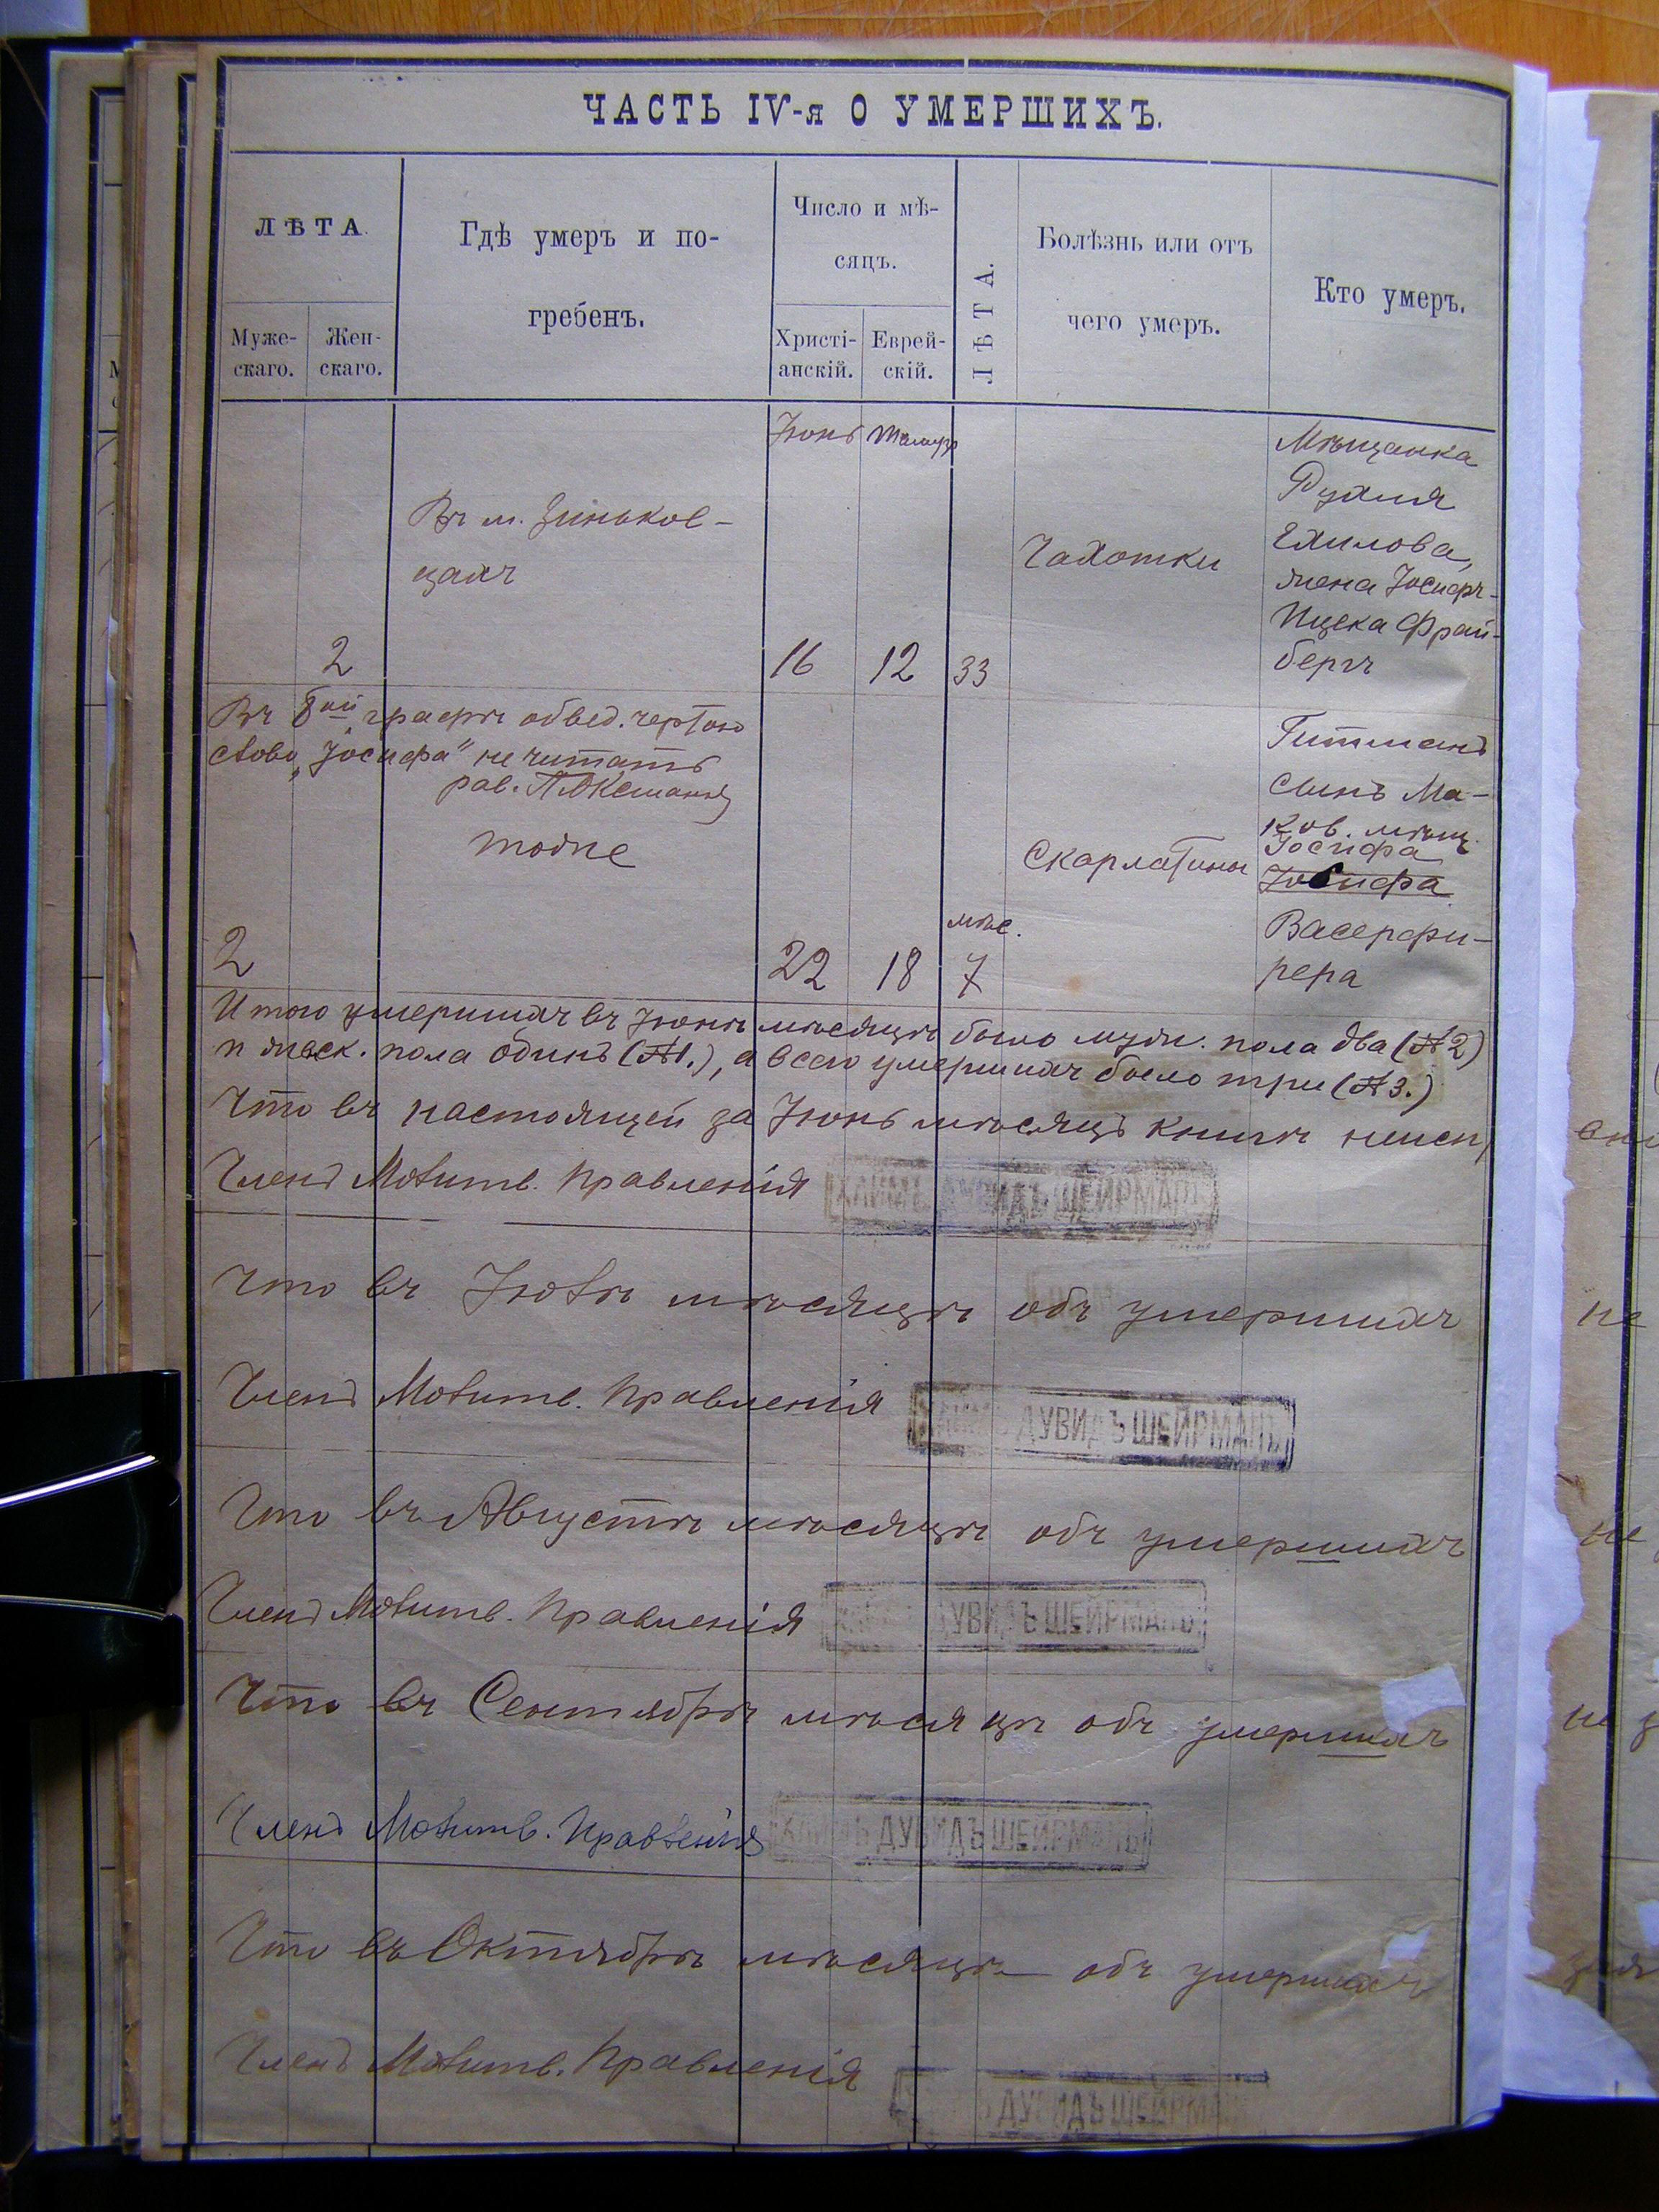 ЧАСТЬ IV-я О УМЕРШИХЪ.
ЛѢТА.
Муже-
скаго.
Жен-
скаго.
Гдѣ умеръ и по-
гребенъ.
Число и мѣ-
сяцъ.
Христі-
анскій.
Еврей-
скій.
ЛѢТА.
Болѣзнь или отъ
чего умеръ.
Кто умеръ.
Іюнь
2
Въ м. Зиньков-
цахъ
16
12
33
Чахотки
Мѣщанка
Рухля
жена Іосифъ-
Ицека Фрай-
бергъ
Въ 8ой графѣ обвед. чертою
слово „Іосифа" не читать
рав.
тоже
2
22
18
мѣс.
7
Скарлатины
сынъ Ма-
ков. мѣщ.
Іосифа
Іосифа
Васерфи-
рера
Итого умершихъ въ Іюнѣ мѣсяцѣ было муж. пола два (№2)
и женск. пола одинъ (№1.), а всего умершихъ было три (№3.)
Что въ настоящей за Іюнь мѣсяцъ книгѣ
Членъ Молитв. Правленія
ХАИМЪ ДУВИДЪ ШЕЙРМАНЪ
Что въ Іюлѣ мѣсяцѣ объ умершихъ
не
Членъ Молитв. Правленія
ХАИМЪ ДУВИДЪ ШЕЙРМАНЪ
Что въ Августѣ мѣсяцѣ объ умершихъ
не
Членъ Молитв. Правленія
ДУВИДЪ ШЕЙРМАНЪ
Что въ Сентябрѣ мѣсяцѣ объ умершихъ
Членъ Молитв. Правленія
ХАИМЪ ДУВИДЪ ШЕЙРМАНЪ
Что въ Октябрѣ мѣсяцѣ объ умершихъ
Членъ Молитв. Правленія
ДУВИДЪ ШЕЙРМАНЪ